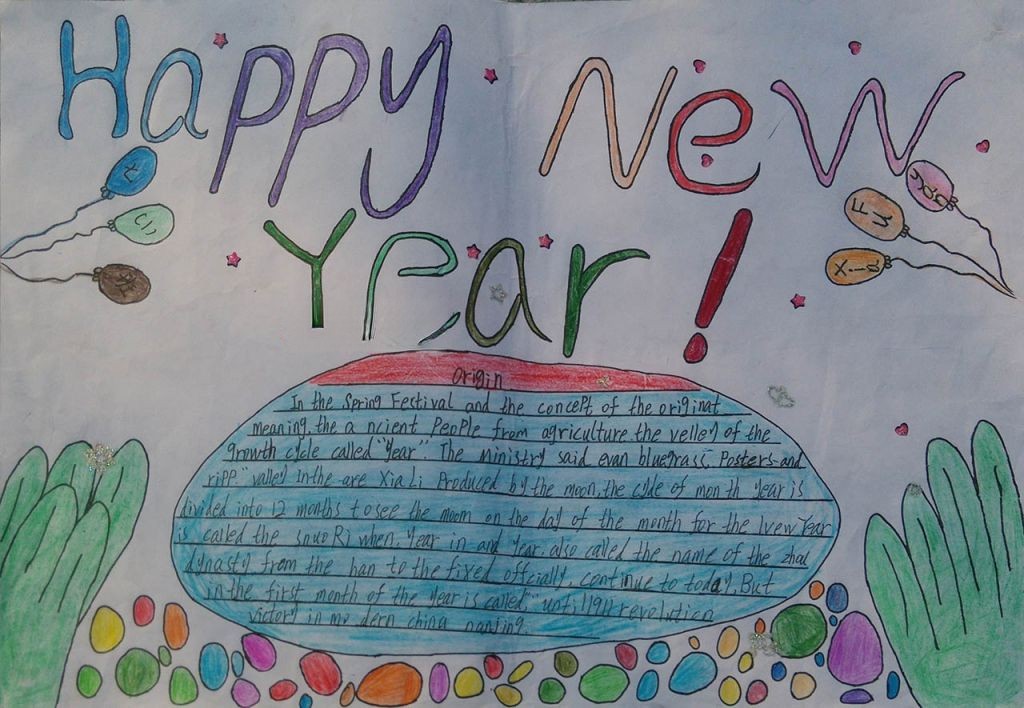 Happy New
Year!
Fu
Xia
Origin
In the Spring Festival and the concept of the originat
meaning, the a ncient People from agriculture the velley of the
growth cycle called "year". The ministry said evan bluegrass. Posters and
ripp "valley in the are Xia Li Produced by the moon, the cycle of month year is
divided into 12 months to see the moom on the day of the month for the lvew Year
is called the snuo Ri when, year in and year. also called the name of the zhou
dynasty from the han to the fixed offcially, continue to today, But
in the first month of the year is called," until 1911 revolution
victory in mo dern china nanjing.